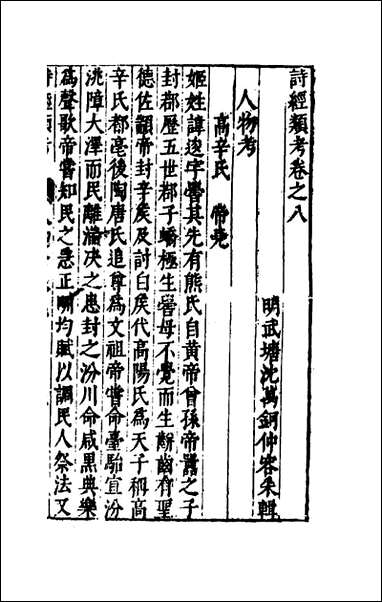 詩經類考卷之八
明武塘沈萬鈳仲容采輯
人物考
高辛氏 帝堯
姬姓諱逡字嚳其先有熊氏自黃帝曾孫帝嚚之子
封郡歷五世郡子蟜極生嚳母不覺而生駢齒有聖
德佐顓帝封辛矦及討白矦代高陽氏為天子稱高
辛氏都亳後陶唐氏追尊為文祖帝嘗命臺駘宣汾
洮障大澤而民離滿決之患封之汾川命咸黑典樂
為聲歌帝嘗知民之急正朔均賦以調民人祭法又